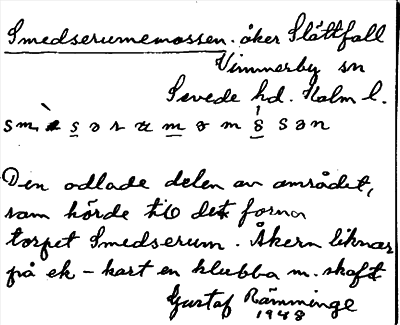 Smedserumemossen. åker Slåttfall
Vimmerby sn
Sevede hd. Kalm l.
Den odlade delen av området,
som hörde till det forna
torpet Smedserum. Åkern liknar
på ek-kart en klubba m. skaft
Gustaf Rämminge
1948